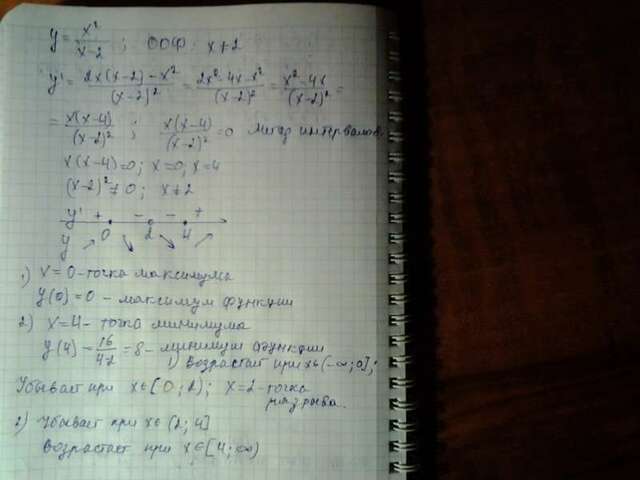 y = x²/(x-2) ; ООФ: x ≠ 2
y' = (2x(x-2) - x²)/(x-2)² = (2x² - 4x - x²)/(x-2)² = (x² - 4x)/(x-2)² =
= x(x-4)/(x-2)² ; x(x-4)/(x-2)² = 0 Метод интервалов.
x(x-4)=0; x=0; x=4
(x-2)² ≠ 0; x ≠ 2
y' + - - +
0 2 4
y ↗ ↘ ↘ ↗
1) x=0 - точка максимума
y(0)=0 - максимум функции
2) x=4 - точка минимума
y(4) = 16/(4-2) = 8 - минимум функции
1) Возрастает при x∈(-∞;0];
Убывает при x∈[0;2); x=2 - точка
разрыва.
2) Убывает при x∈(2;4]
Возрастает при x∈[4;∞)